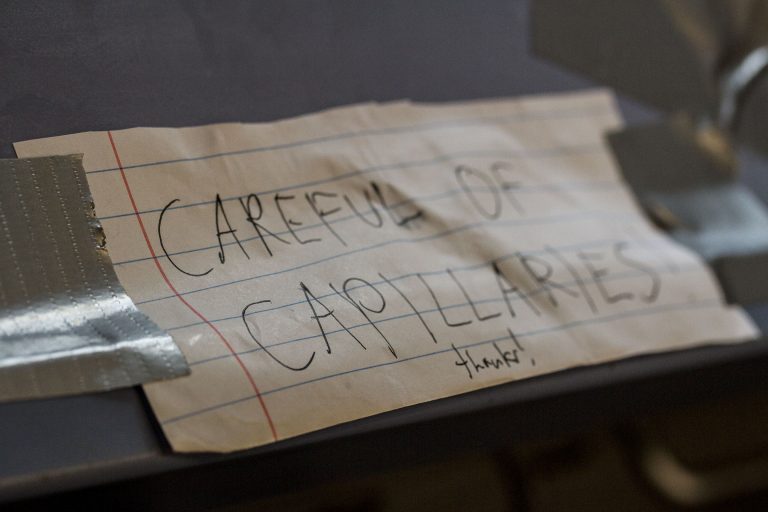 CAREFUL OF
CAPILLARIES
thanks!